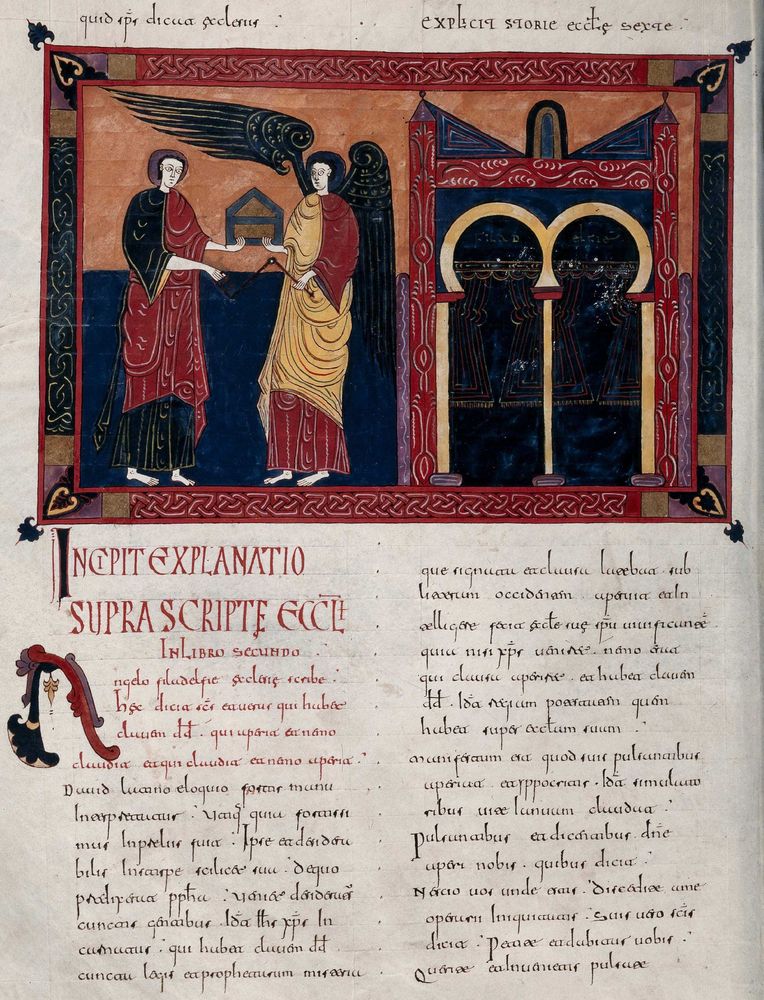 quid sp̄s dicat ęclesiis :
EXPLICIT STORIE ECCLĘ SEXTE :
FILAD ELFIE
INCIPIT EXPLANATIO
SUPRA SCRIPTĘ ECCL̄
IN LIBRO SECUNDO
Angelo filadelfie ęclesię scribe :
Hęc dicit sc̄s et uerus qui habet
clauem dd̄ . qui aperit et nemo
claudit et qui claudit et nemo aperit :
Dauid latino eloquio fortis manu
interpretatur . Utiq quia fortissi
mus in prelio fuit . Ipse et desidera
bilis in stirpe scilicet sua . De quo
predixerat ppħa : Ueniet desideratus
cunctis gentibus . Id ē ihs xp̄s in
carnatus . qui habet clauem dd̄ .
cuncta legis et prophetarum misteria
que signata et clausa latebat . sub
litterarum aperta et in
telligere fecit ęccle suę sp̄u uiuificante
quia nisi xp̄s ueniret . nemo erat
qui clausa aperiret . et habet clauem
dd̄ . Id ē regiam potestatem quam
habet super ecclam suam :
Manifestum est quod suis pulsantibus
aperiat et yppocritis . Id ē simulato
ribus uite ianuam claudat :
Pulsantibus et dicentibus . dn̄e
aperi nobis . quibus dicit :
Nescio uos unde estis . Discedite a me
operarii iniquitatis . Suis uero sc̄is
dicit . Petite et dabitur uobis :
Querite et inuenietis pulsate